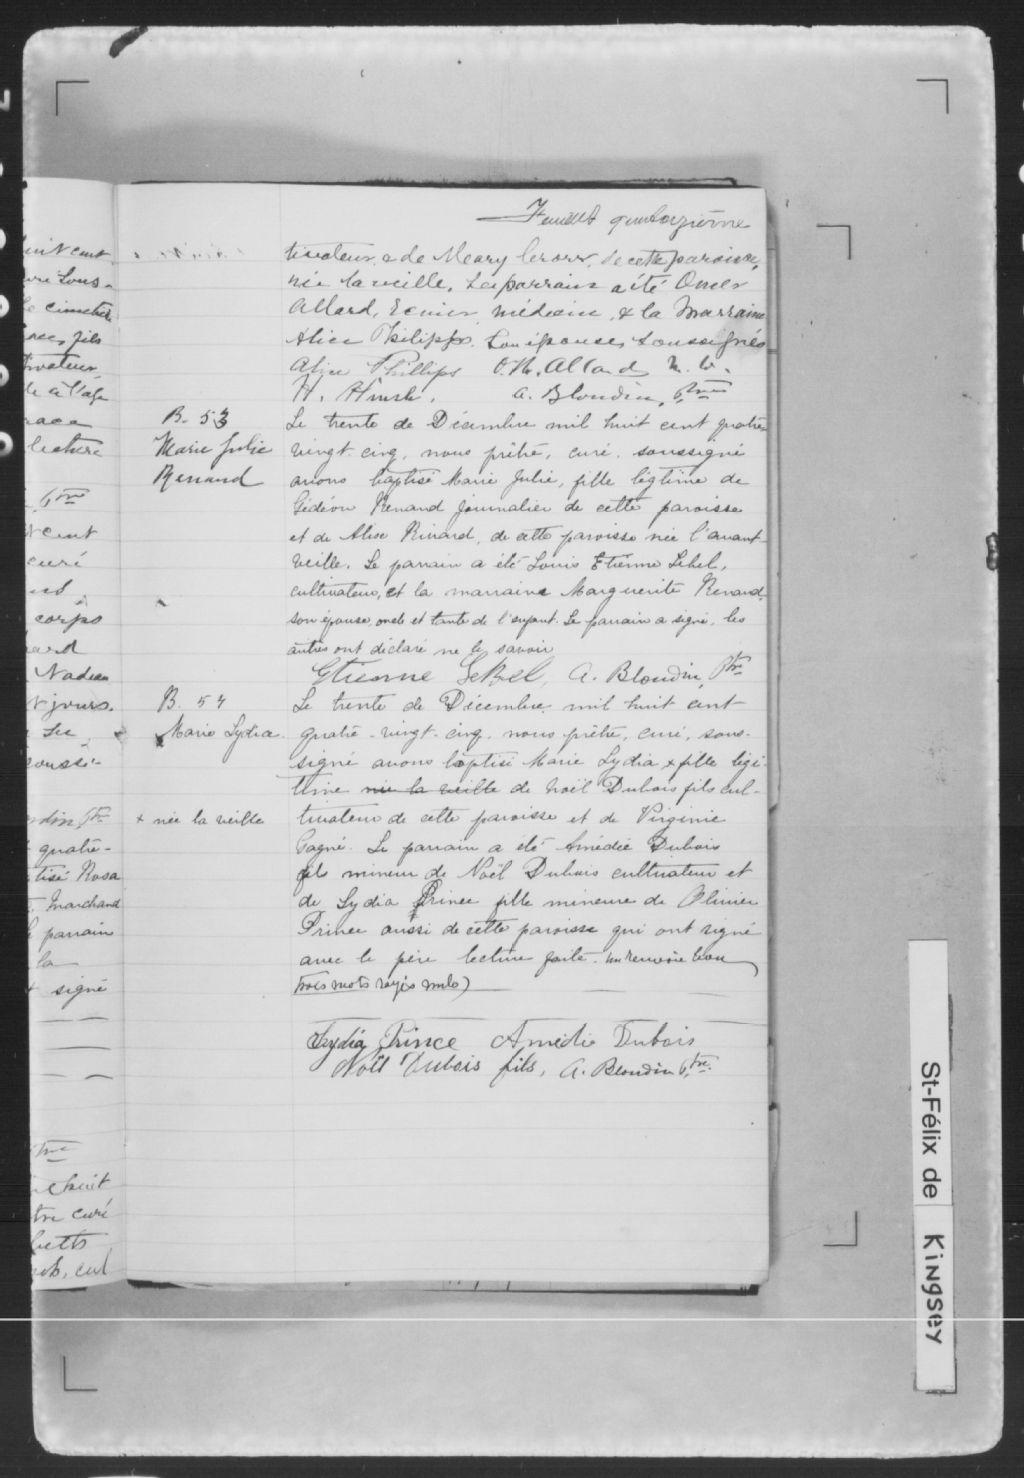 Feuillet quatorzième
tivateur & de Meary de cette paroisse,
née la veille. Le parrain a été Omer
Allard, Ecuier, médecin, & la Marraine
Alice Philipps. Son épouse, soussignés
Alice Phillips O. H. Allard M. D.
H. A. Blondin, Ptre
B. 53
Marie Julie
Renaud
Le trente de Décembre mil huit cent quatre-
vingt-cinq, nous prêtre, curé, soussigné
avons baptisé Marie Julie, fille légitime de
Gédéon Renaud journalier de cette paroisse
et de Alise Rivard, de cette paroisse née l'avant
veille. Le parrain a été Louis Etienne Lebel,
cultivateur, et la marraine Marguerite Renard,
son épouse, oncle et tante de l'enfant. Le parrain a signé, les
autres ont déclaré ne le savoir
Etienne Lebel, A. Blondin, Ptre
B. 54
Marie Lydia
Le trente de Décembre mil huit cent
quatre-vingt-cinq, nous prêtre, curé, sous-
signé avons baptisé Marie Lydia x fille légi-
time née la veille de Noël Dubois fils cul-
x née la veille
tivateur de cette paroisse et de Virginie
Gagné. Le parrain a été Amédée Dubois
fils mineur de Noël Dubois cultivateur et
de Lydia Prince fille mineure de Olivier
Prince aussi de cette paroisse qui ont signé
avec le père lecture faite. un renvoie bon
trois mots rayés nuls)
Lydia Prince Amédie Dubois
Noël Dubois fils, A. Blondin Ptre
uit cent
cimetiè
fils
tivateur,
de à l'age
lecture
Ptre
cent
curé
corps
Nadeau
jours.
Ptre
quatre-
tisé Rosa
Marchand
parrain
la
signé
huit
tre curé
cul
St-Félix de Kingsey